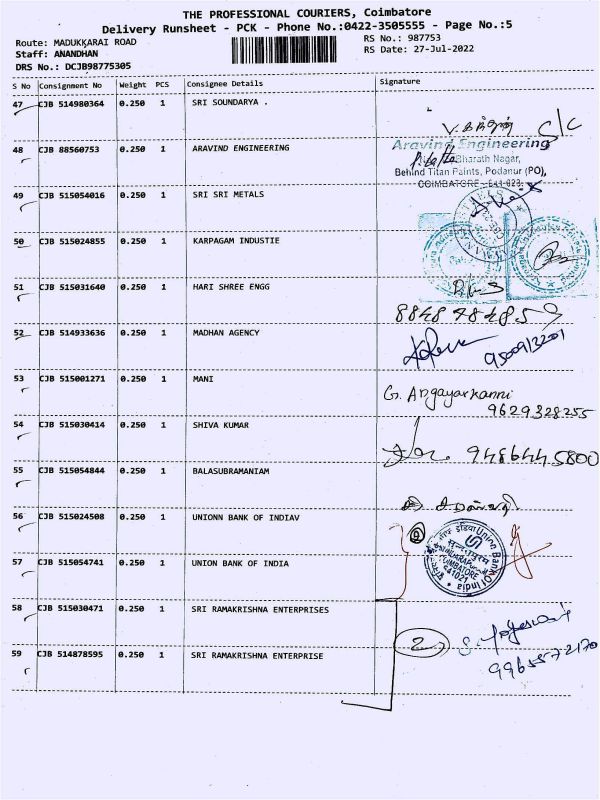 THE PROFESSIONAL COURIERS, Coimbatore
Delivery Runsheet - PCK - Phone No.:0422-3505555 - Page No.:5
Route: MADUKKARAI ROAD RS No.: 987753
Staff: ANANDHAN RS Date: 27-Jul-2022
DRS No.: DCJB98775305
S No Consignment No Weight PCS Consignee Details Signature
47 CJB 514980364 0.250 1 SRI SOUNDARYA .
C/C
48 CJB 88560753 0.250 1 ARAVIND ENGINEERING
Aravind Engineering
Bharath Nagar,
Behind Titan Paints, Podanur (PO),
COIMBATORE - 641 023.
49 CJB 515054016 0.250 1 SRI SRI METALS
50 CJB 515024855 0.250 1 KARPAGAM INDUSTIE
51 CJB 515031640 0.250 1 HARI SHREE ENGG
8848484859
52 CJB 514933636 0.250 1 MADHAN AGENCY
9500913201
53 CJB 515001271 0.250 1 MANI
G. Angayarkanni
9629328255
54 CJB 515030414 0.250 1 SHIVA KUMAR
9486445800
55 CJB 515054844 0.250 1 BALASUBRAMANIAM
56 CJB 515024508 0.250 1 UNIONN BANK OF INDIAV
2
Union Bank Of India
COIMBATORE
641021
57 CJB 515054741 0.250 1 UNION BANK OF INDIA
58 CJB 515030471 0.250 1 SRI RAMAKRISHNA ENTERPRISES
2
S. Yogeswari
9965572170
59 CJB 514878595 0.250 1 SRI RAMAKRISHNA ENTERPRISE